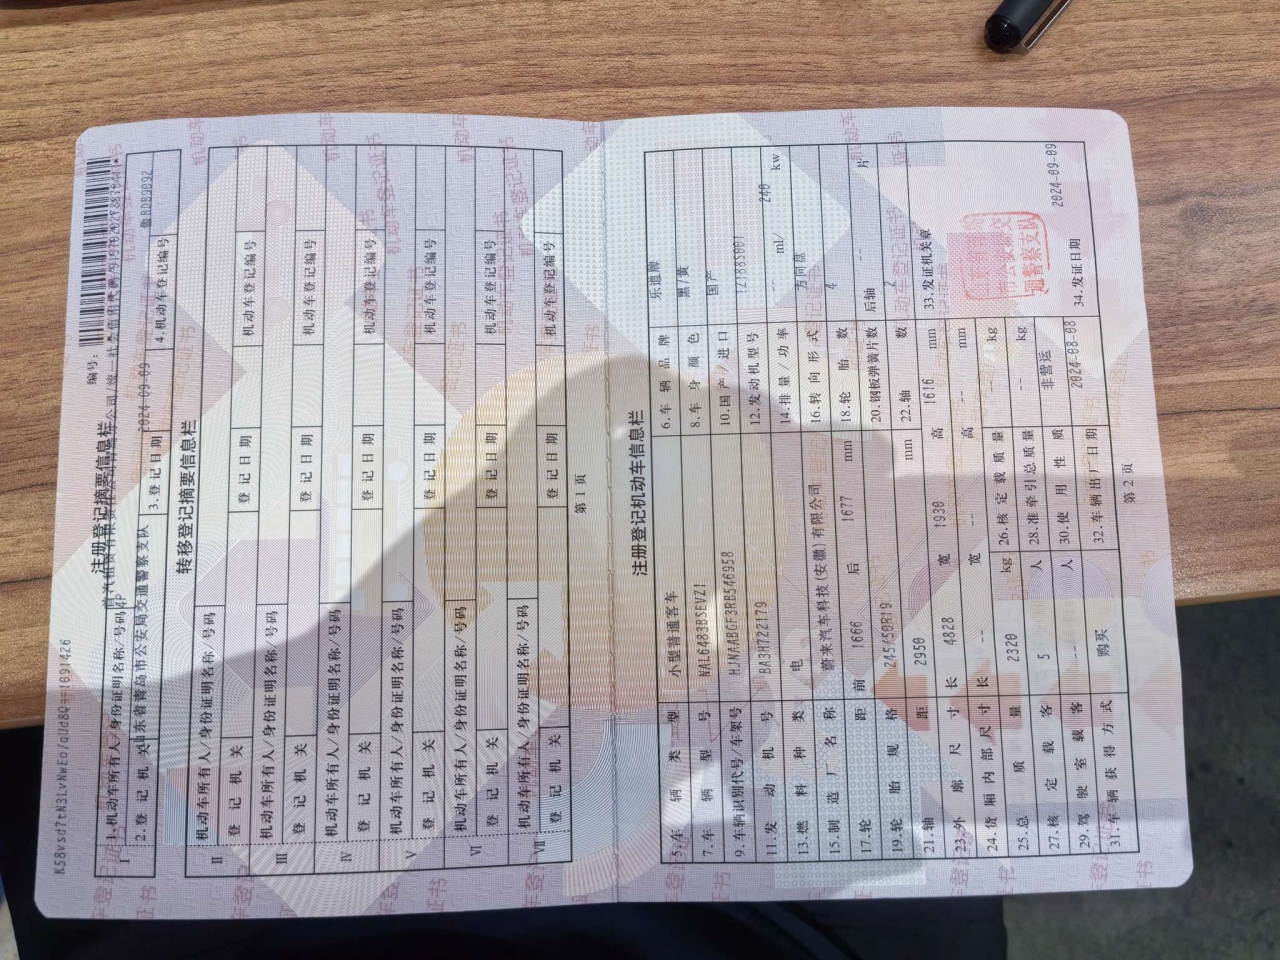 K58vsd7tN3LvNwEo/qUd8Q==1091426
编号:
注册登记摘要信息栏
I
1.机动车所有人/身份证明名称/号码
2.登记机关 山东省青岛市公安局交通警察支队 3.登记日期 2024-09-09 4.机动车登记编号 鲁BDB9092
转移登记摘要信息栏
II 机动车所有人/身份证明名称/号码
登记机关 登记日期 机动车登记编号
III 机动车所有人/身份证明名称/号码
登记机关 登记日期 机动车登记编号
IV 机动车所有人/身份证明名称/号码
登记机关 登记日期 机动车登记编号
V 机动车所有人/身份证明名称/号码
登记机关 登记日期 机动车登记编号
VI 机动车所有人/身份证明名称/号码
登记机关 登记日期 机动车登记编号
VII 机动车所有人/身份证明名称/号码
登记机关 登记日期 机动车登记编号
第1页
注册登记机动车信息栏
5.车辆类型 小型普通客车 6.车辆品牌 乐道牌
7.车辆型号 NAL6483BSEVZ1 8.车身颜色 黑/黄
9.车辆识别代号/车架号 HJNAABGF3RB546958 10.国产/进口 国产
11.发动机号 BA3H722179 12.发动机型号
13.燃料种类 电 14.排量/功率 -- ml/ 240 kw
15.制造厂名称 蔚来汽车科技(安徽)有限公司 16.转向形式 方向盘
17.轮距 前 1666 后 1677 mm 18.轮胎数 4
19.轮胎规格 245/50R19 20.钢板弹簧片数 后轴 -- 片
21.轴距 2950 mm 22.轴数 2
23.外廓尺寸 长 4828 宽 1930 高 1616 mm 33.发证机关章
24.货厢内部尺寸 长 -- 宽 -- 高 -- mm
25.总质量 2320 kg 26.核定载质量 -- kg
27.核定载客 5 人 28.准牵引总质量 -- kg
29.驾驶室载客 -- 人 30.使用性质 非营运
31.车辆获得方式 购买 32.车辆出厂日期 2024-08-08 34.发证日期 2024-09-09
第2页